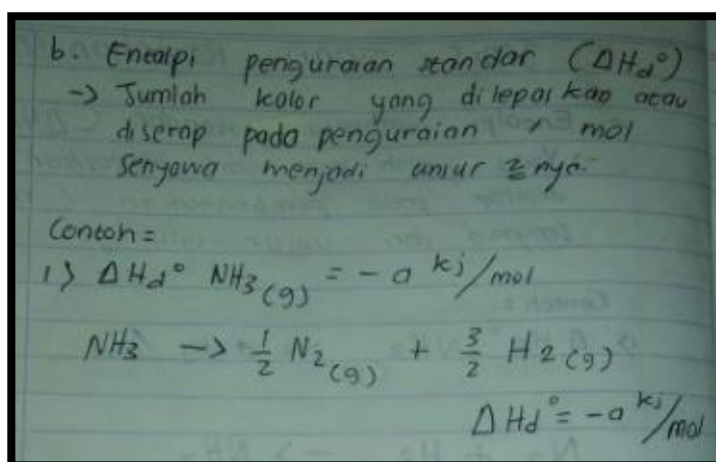 b. Entalpi penguraian standar (ΔHd°)
-> Jumlah kalor yang dilepaskan atau
diserap pada penguraian 1 mol
Senyawa menjadi unsur 2nya.
Contoh =
1) ΔHd° NH3(g) = - a kj/mol
NH3 -> 1/2 N2(g) + 3/2 H2(g)
ΔHd° = -a kj/mol